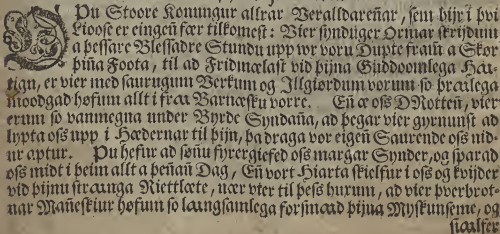 Þu Stoore Konungur allrar Veralldareñar, sem bijr i þvi
Lioose er eingeñ fær tilkomest: Vier synduger Ormar skrijdum
a þessare Blessadre Stundu upp wr voru Dupte frañ a Skor
þiña Foota, til ad Fridmælast vid þijna Guddoomlega Ha-
tign, er vier med saurugum Verkum og Illgiordum vorum so þralega
moodgad hofum allt i fra Barnæsku vorre. Eñ æ oss DRotteñ, vier
erum so vanmegna under Byrde Syndaña, ad þegar vier gyrnunst ad
lypta oss upp i Hædernar til þijn, þa draga vor eigeñ Saurende oss nid-
ur aptur. Þu hefur ad sоñu fyrergiefed oss margar Synder, og sparad
oss midt i þeim allt a þeñañ Dag, Eñ vort Hiarta skielfur i oss og kvijder
vid þijnu stranga Riettlæte, nær vier til þess huxum, ad vier þverbrot-
nar Mañeskiur hofum so langsamlega forsmad þijna Myskunseme, og
sialfer